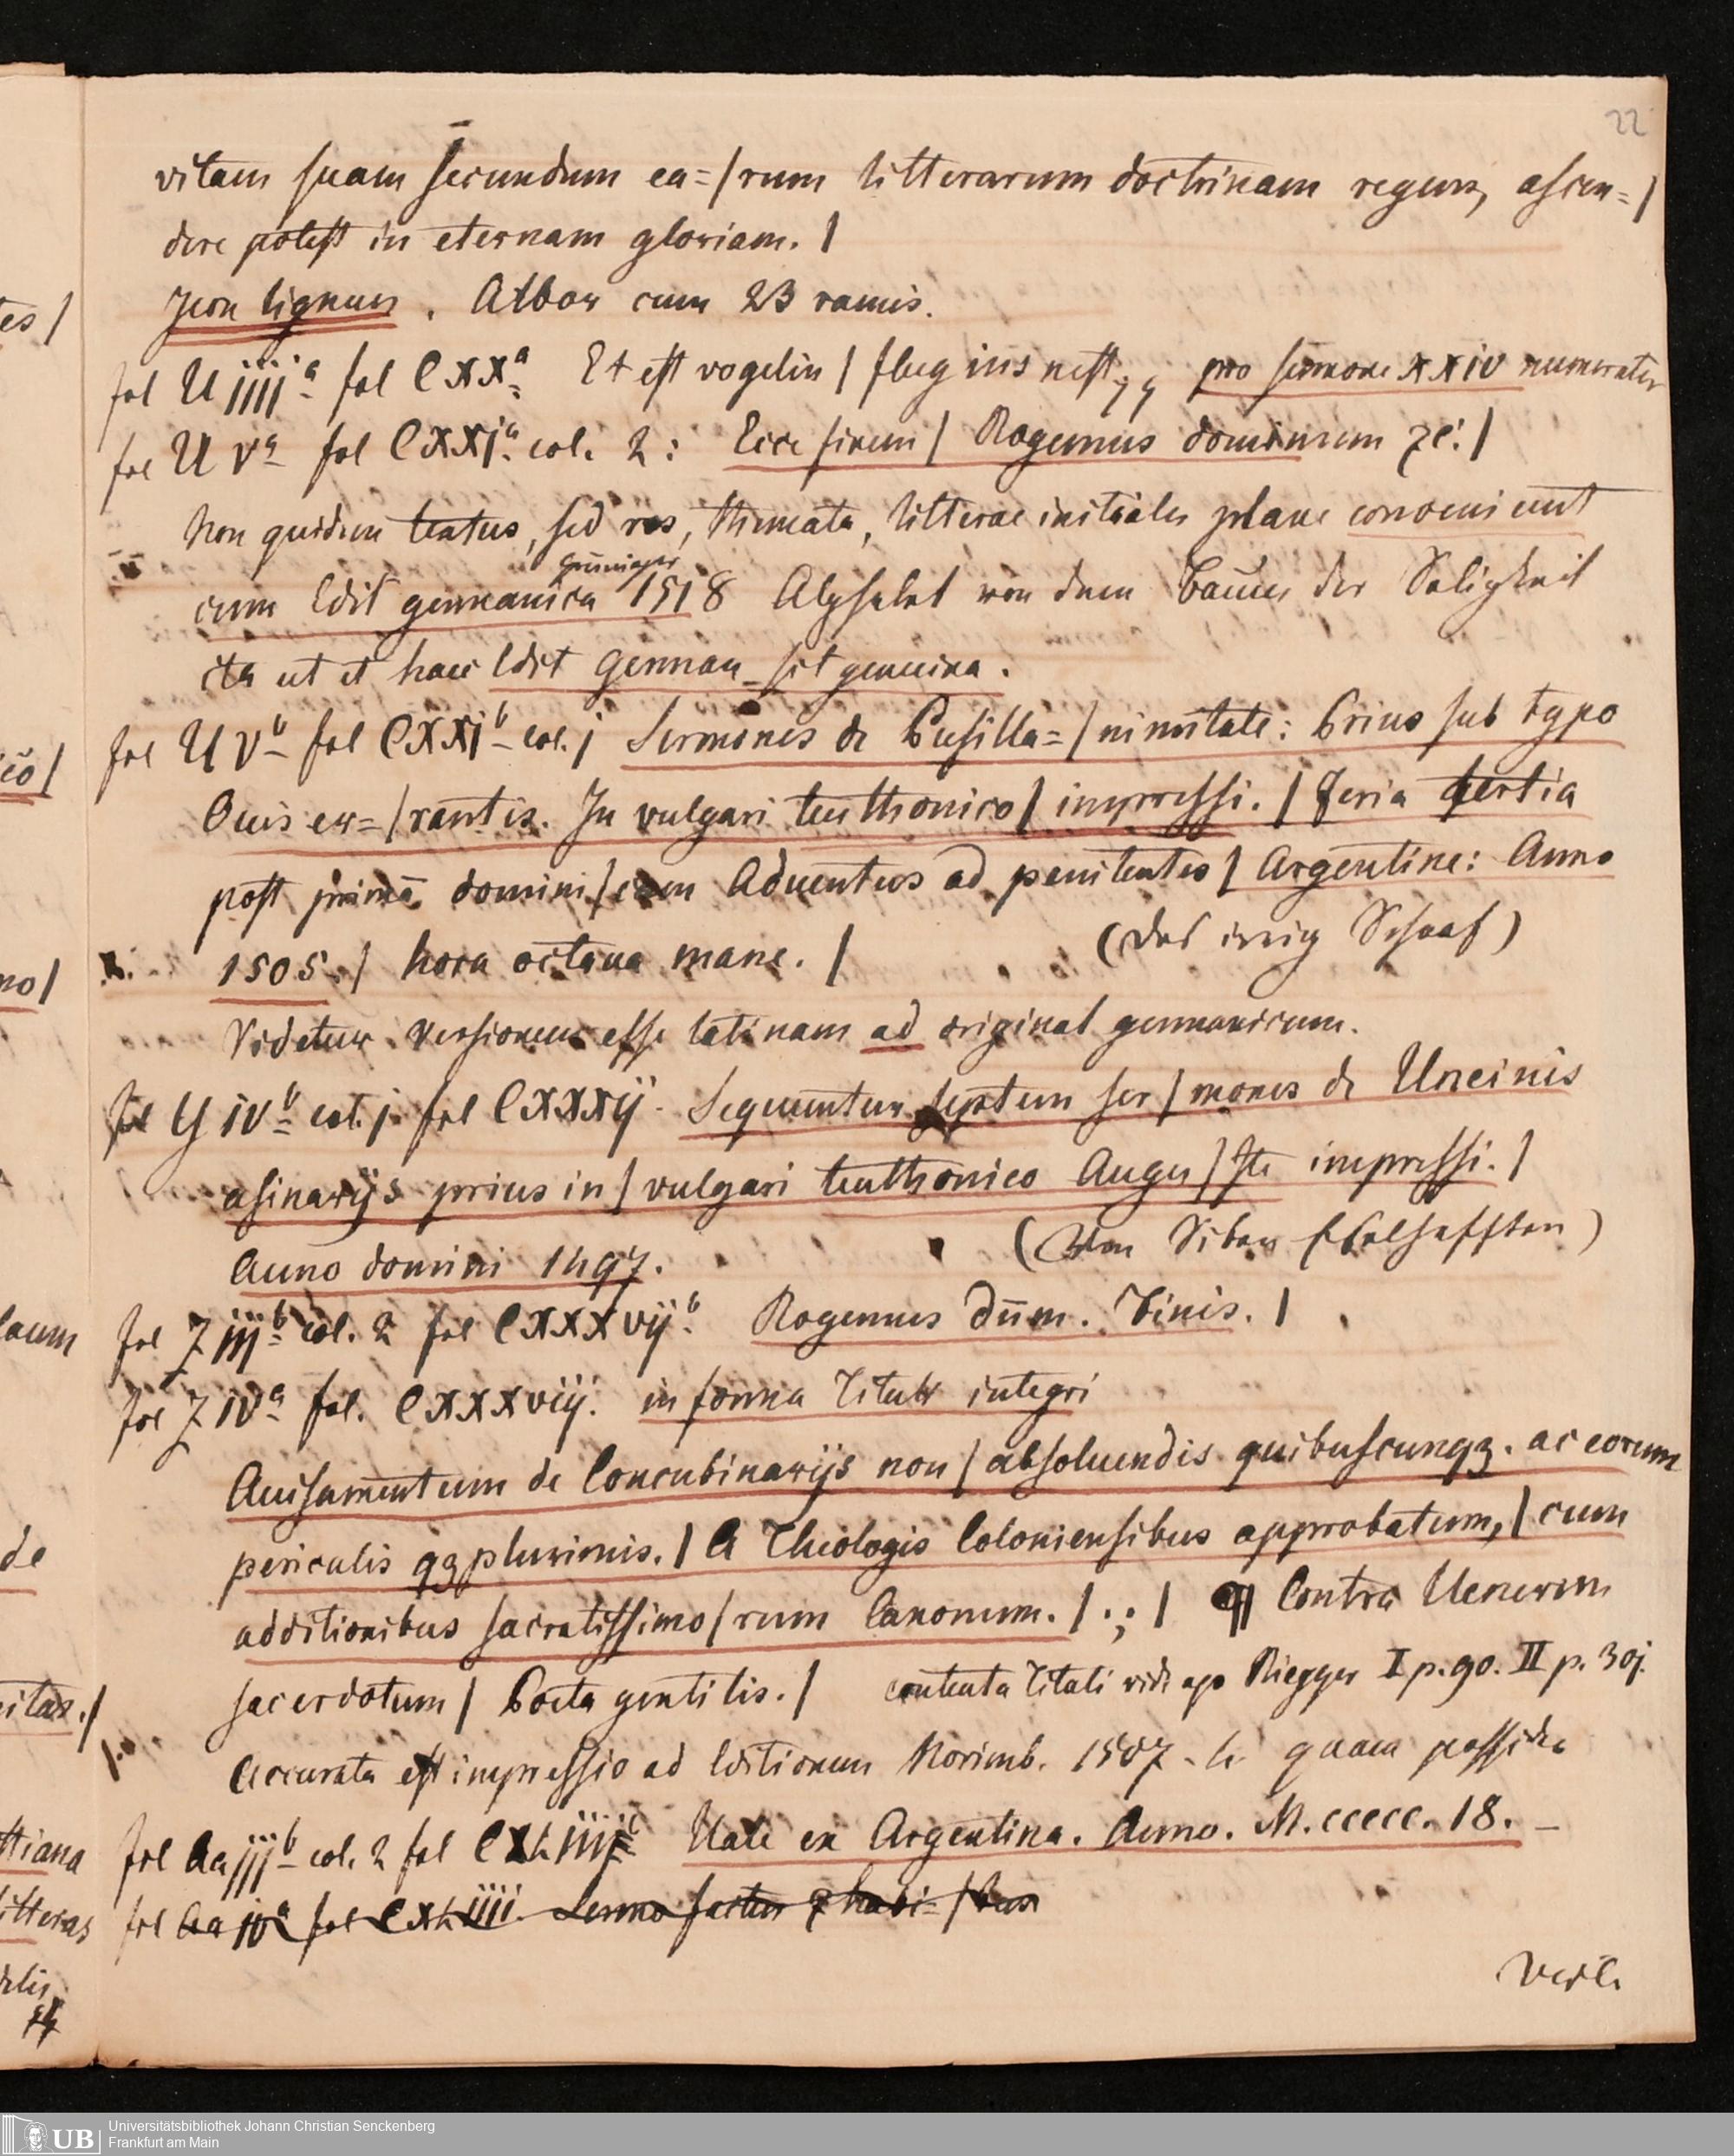 22
vitam suam secundum ea=/rum litterarum doctrinam regens, ascen=/
dere potest in eternam gloriam. /
Icon lignum. Arbor cum 23 ramis.
fol U iiij a fol CXX a Et est vogelin / flug ins nest pro sermone xxiv numeratur
fol U v a fol CXXj a col. 2: Ecce finem / Rogemus dominum ꝛc: /
Non quidem textus, sed res, themata, litterae initiales plane conveniunt
Grüninger
cum Edit germanica 1518 Alphabet von dem Baum der Seligkeit
ita ut et haec Edit German sit genuina.
fol U v b fol CXXj b col. j Sermones de Pusilla=/nimitate: Prius sub typo
Ouis er=/rantis. In vulgari teuthonico / impressi. / Feria tertia
post primā domini/cam Aduentus ad penitentes / Argentine: Anno
1505. / hora octaua mane. / (das irrig Schaaf)
Videtur versionem esse latinam ad original germanicum.
fol Y iv b col. j. fol CXXXij. Sequuntur septem ser/mones de Uncinis
asinarijs prius in / vulgari teuthonico Augu/ste impressi. /
Anno domini 1497. (Von Siben Eselschefften)
fol Z iij b col. 2 fol CXXXvij b. Rogemus dūm. Finis. /
fol Z iv a fol. CXXXviij. in forma Tituli integri
Auisamentum de Concubinarijs non / absoluendis quibuscunqꝫ. ac eorum
periculis qꝫ plurimis. / A Theologis Coloniensibus approbatum, / cum
additionibus sacratissimo/rum Canonum. / .;. / ¶ Contra Uenerem
sacerdotum / Poeta gentilis. / contenta Tituli vide ap Riegger I p. 90. II p. 30j.
Accurata est impressio ad Editionem Norimb. 1507. 4. quam possideo
fol Aa iij b col. 2 fol CXLiiij Uale ex Argentina. Anno. M.ccccc.18. –
fol Aa iv a fol CXLiiij. Sermo factus ꝫ habi=/tus